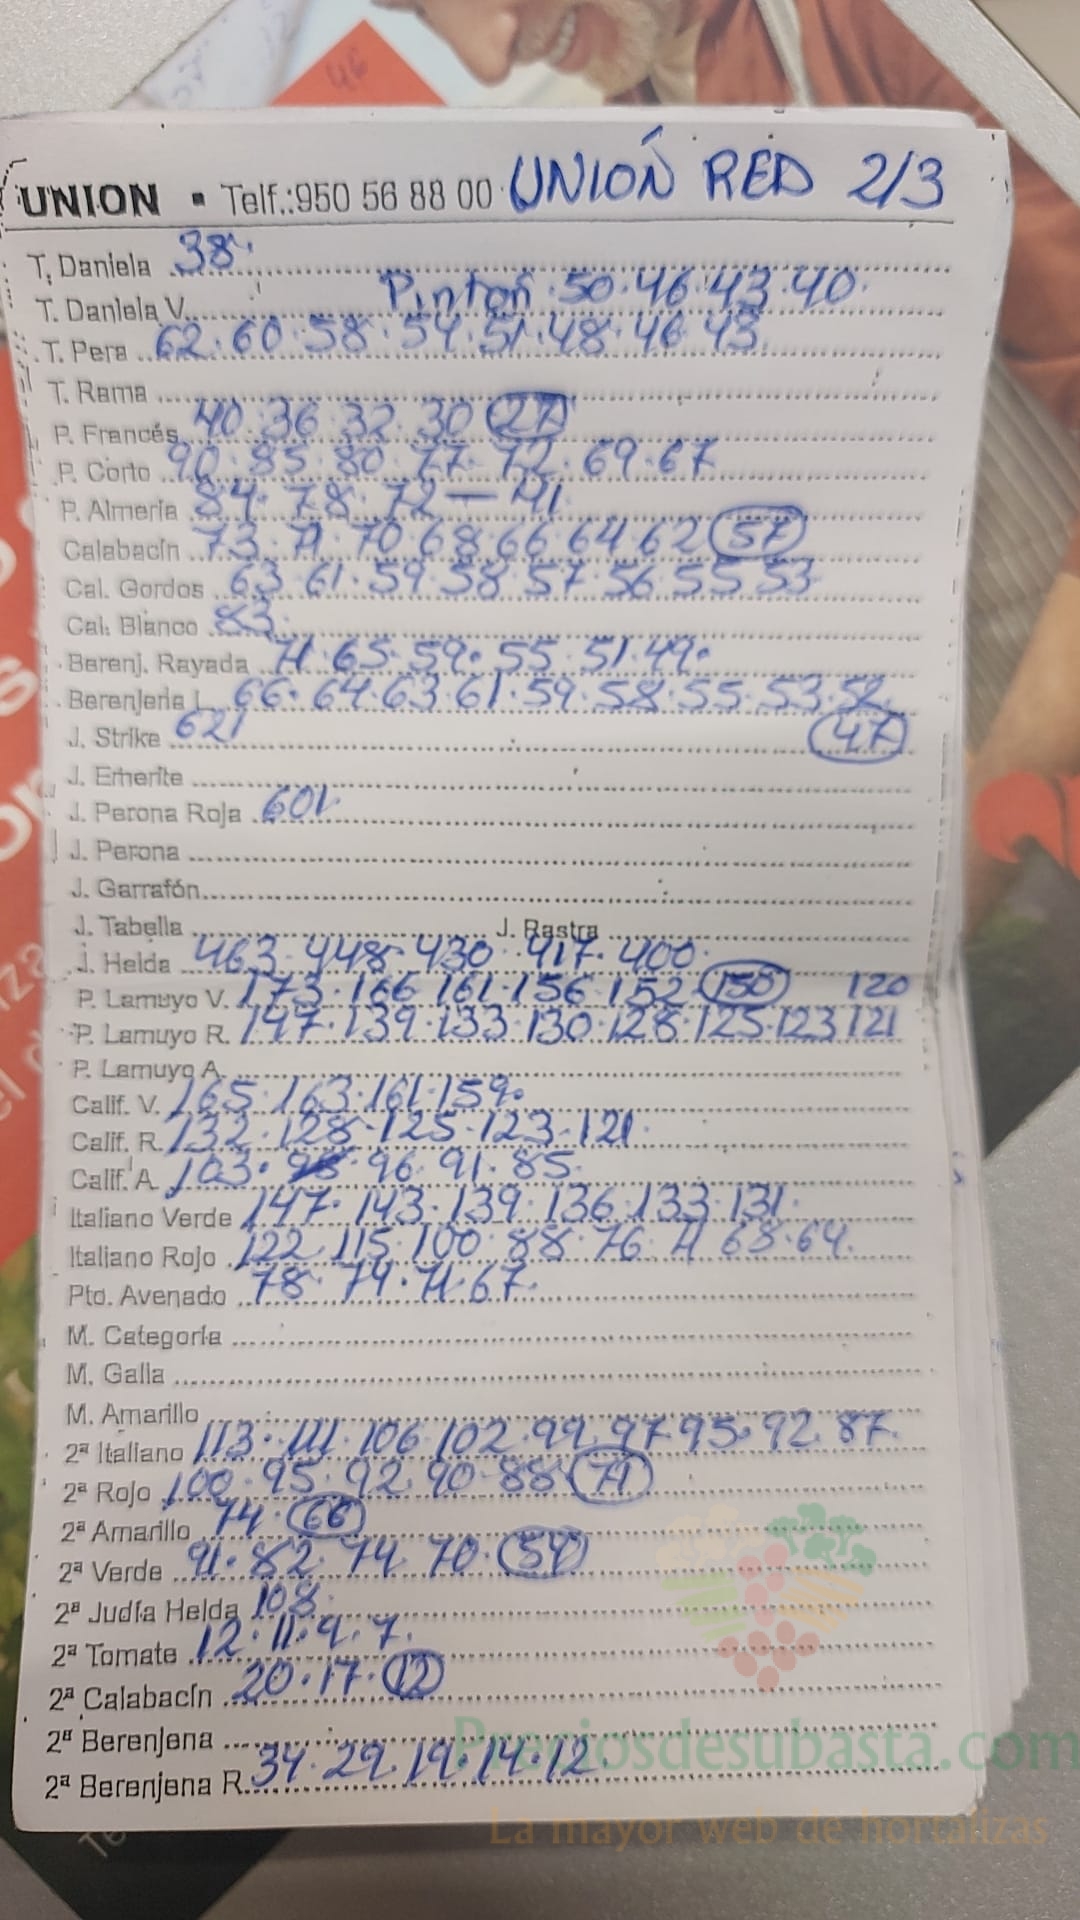 UNION ▪ Telf.:950 56 88 00 UNIOŃ RED 2/3
T. Daniela 38
Pinton 50 46 43 40
T. Daniela V.
T. Pera 62 60 58 54 51 48 46 43
T. Rama
P. Francés 40 36 32 30 27
P. Corto 90 85 80 77 72 69 67
P. Almería 84 78 72 — 41
Calabacín 73 71 70 68 66 64 62 57
Cal. Gordos 63 61 59 58 57 56 55 53
Cal. Blanco 83
Berenj. Rayada 71 65 59 55 51 49
Berenjena L 66 64 63 61 59 58 55 53 52
J. Strike 621 47
J. Emerite
J. Perona Roja 601
J. Perona
J. Garrafón
J. Tabella J. Rastra
J. Helda 463 448 430 417 400
P. Lamuyo V. 173 166 161 156 152 150 120
P. Lamuyo R. 147 139 133 130 128 125 123 121
P. Lamuyo A.
Calif. V. 165 163 161 159
Calif. R. 132 128 125 123 121
Calif. A. 103 96 91 85
Italiano Verde 147 143 139 136 133 131
Italiano Rojo 122 115 100 88 76 71 68 64
Pto. Avenado 78 74 71 67
M. Categoría
M. Galia
M. Amarillo
2ª Italiano 113 111 106 102 99 97 95 92 87
2ª Rojo 100 95 92 90 88 71
2ª Amarillo 74 66
2ª Verde 91 82 74 70 54
2ª Judía Helda 108
2ª Tomate 12 11 9 7
2ª Calabacín 20 17 12
2ª Berenjena
2ª Berenjena R. 34 29 19 14 12
Preciosdesubasta.com
La mayor web de hortalizas